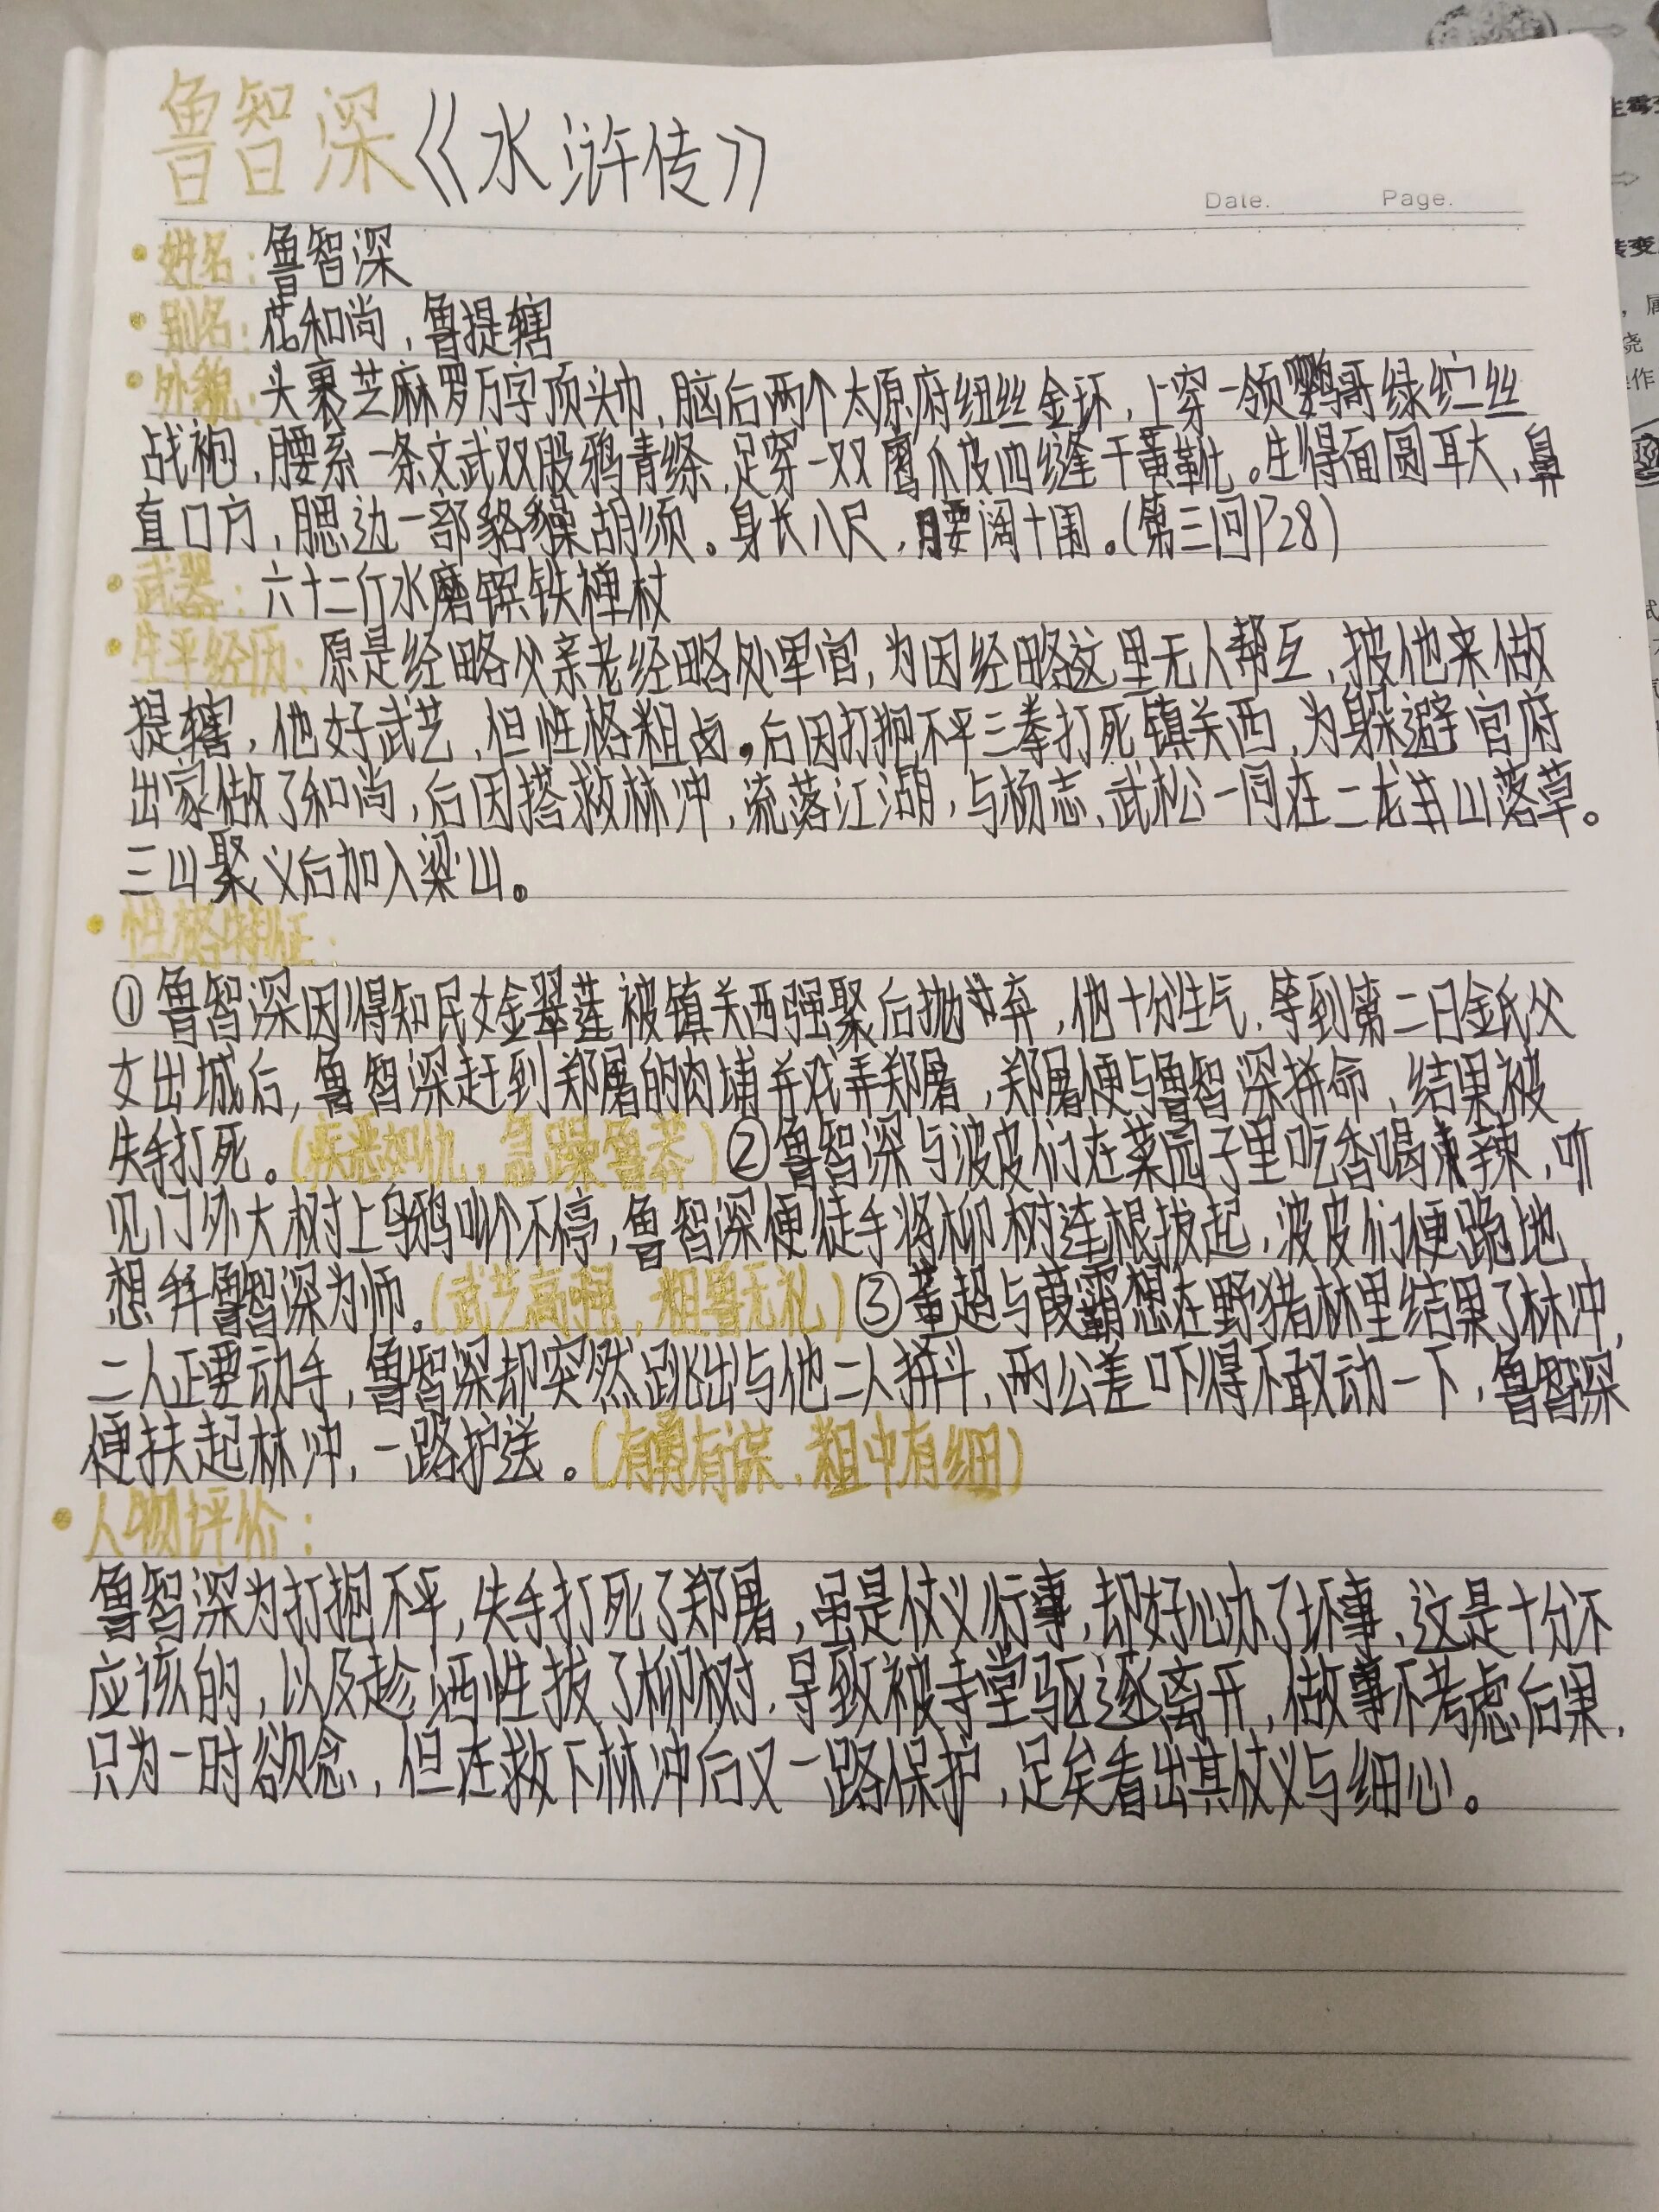 鲁智深《水浒传》
Date. Page.
•姓名:鲁智深
•别名:花和尚,鲁提辖
•外貌:头裹芝麻罗万字顶头巾,脑后两个太原府纽丝金环,上穿一领鹦哥绿纻丝
战袍,腰系一条文武双股鸦青绦,足穿一双鹰爪皮四缝干黄靴。生得面圆耳大,鼻
直口方,腮边一部貉𧴁胡须。身长八尺,腰阔十围。(第三回P28)
•武器:六十二斤水磨镔铁禅杖
•生平经历:原是经略父亲老经略处军官,为因经略这里无人帮互,披他来做
提辖,他好武艺,但性格粗卤,后因打抱不平三拳打死镇关西,为躲避官府
出家做了和尚,后因搭救林冲,流落江湖,与杨志、武松一同在二龙山落草。
三山聚义后加入梁山。
•性格特征:
①鲁智深因得知民女金翠莲被镇关西强聚后抛弃,他十分生气,等到第二日金氏父
女出城后,鲁智深赶到郑屠的肉埔并戏弄郑屠,郑屠便与鲁智深拼命,结果被
失手打死。(疾恶如仇,急躁鲁莽)②鲁智深与波皮们在菜园子里吃香喝辣,听
见门外大树上乌鸦叫个不停,鲁智深便徒手将柳树连根拔起,波皮们便跪地
想拜鲁智深为师。(武艺高强,粗鲁无礼)③董超与薛霸想在野猪林里结果了林冲,
二人正要动手,鲁智深却突然跳出与他二人拼斗,两公差吓得不敢动一下,鲁智深
便扶起林冲,一路护送。(有勇有谋,粗中有细)
•人物评价:
鲁智深为打抱不平,失手打死了郑屠,虽是仗义行事,却好心办了坏事,这是十分不
应该的,以及趁酒性拔了柳树,导致被寺堂驱逐离开,做事不考虑后果,
只为一时欲念,但在救下林冲后又一路保护,足矣看出其仗义与细心。